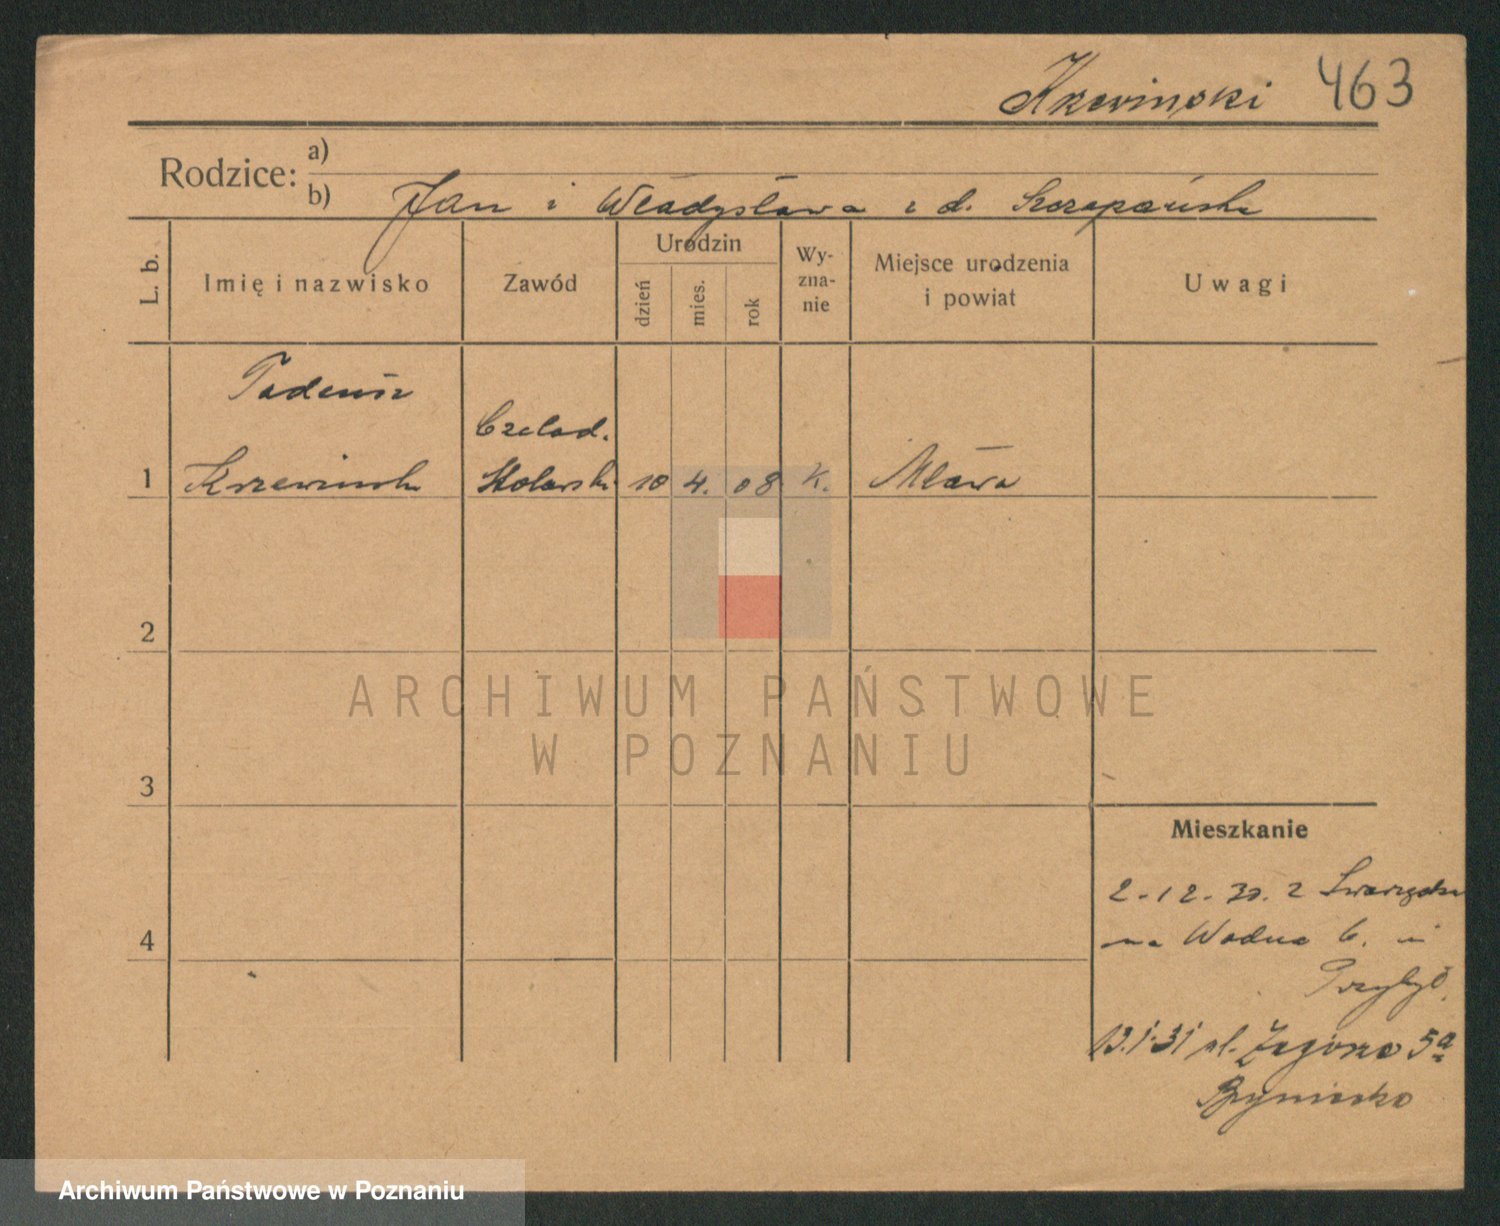 Krzewinski 463
Rodzice: a)
b) Jan i Władysława z d. Szczepańska
L. b. Imię i nazwisko Zawód Urodzin dzień mies. rok Wy-zna-nie Miejsce urodzenia i powiat Uwagi
Tadeusz
Czelad.
1 Krzewinski Stolarski 10 4. 08 K. Mława
2
ARCHIWUM PAŃSTWOWE
W POZNANIU
3
Mieszkanie
2-12-30. z Swarzędza
4 na Wodna 6. u
Przybył.
13.1.31 pl. Zagórze 5a
Archiwum Państwowe w Poznaniu